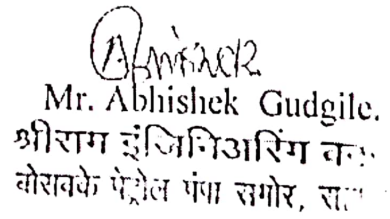 Abhishek
Mr. Abhishek Gudgile.
श्रीराम इंजिनिअरिंग
बोरावके पेट्रोल पंपा समोर,